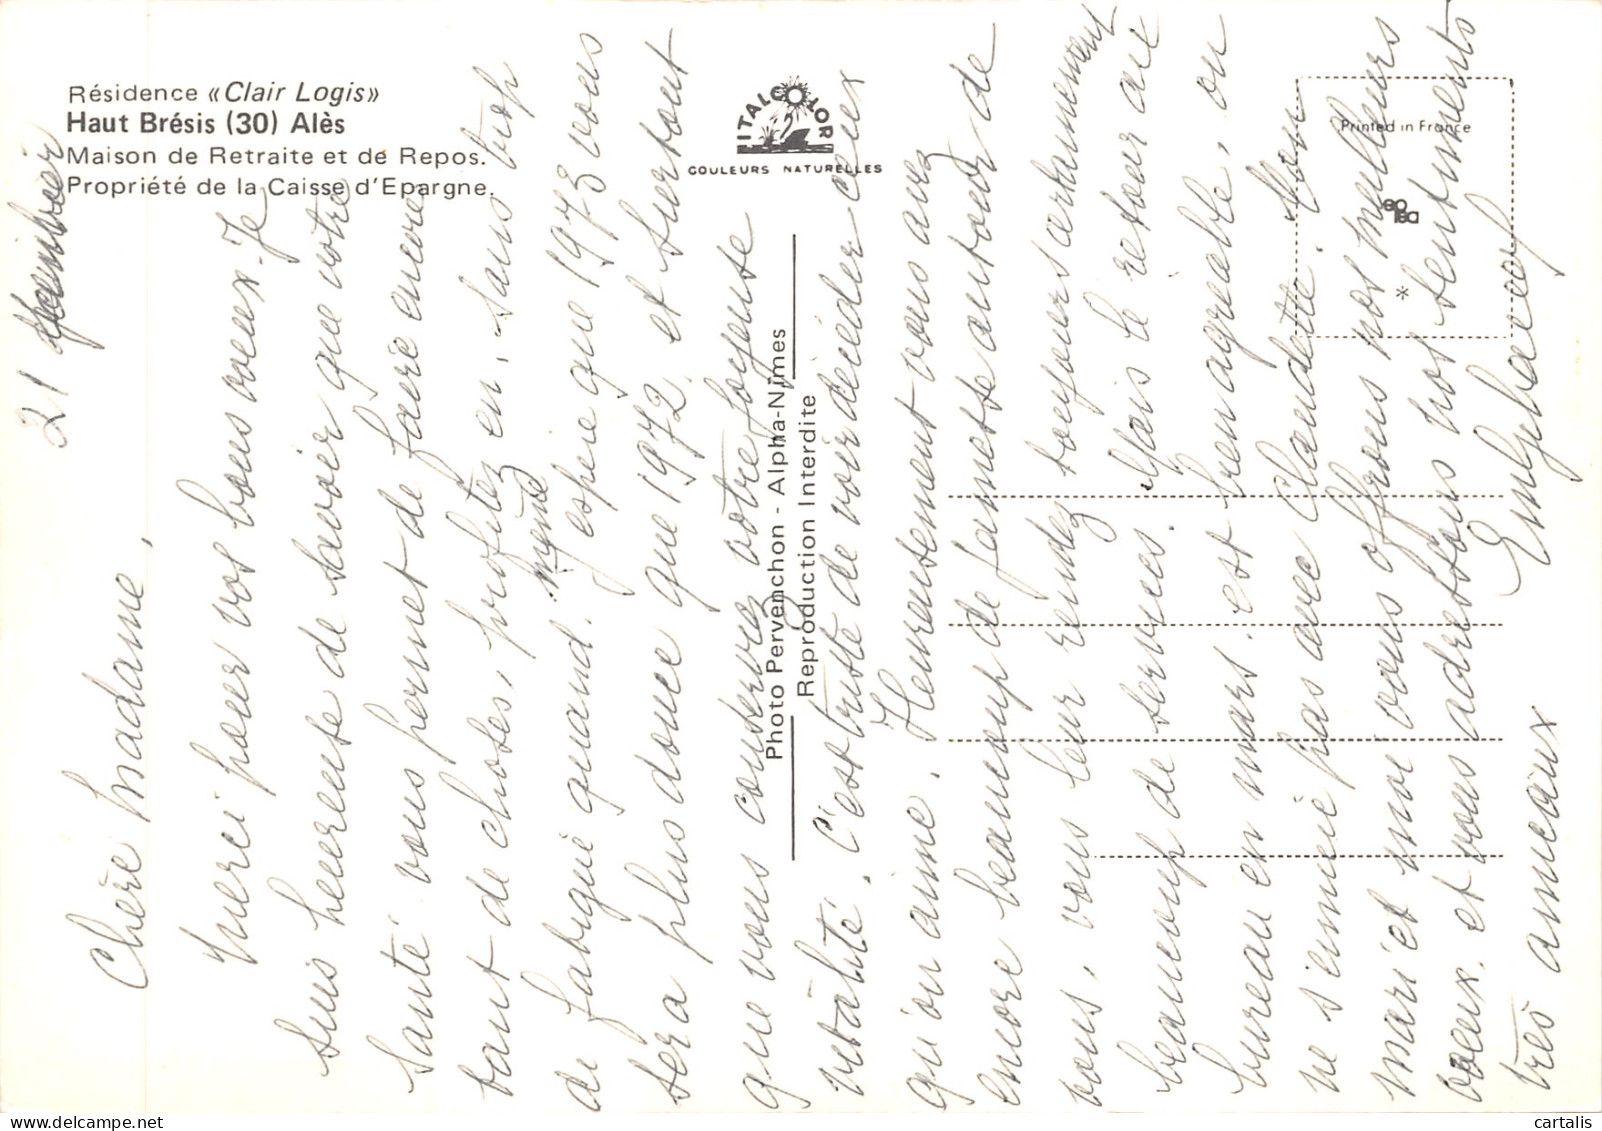 Résidence «Clair Logis»
Haut Brésis (30) Alès
Maison de Retraite et de Repos.
Propriété de la Caisse d'Epargne.
ITALCOLOR
COULEURS NATURELLES
Printed in France
*
Photo Pervenchon - Alpha-Nîmes
Reproduction Interdite
21 décembre
Chère Madame,
Merci pour vos bons voeux. Je
suis heureuse de savoir que votre
santé vous permet de faire encore
tant de choses, profitez en, sans trop
de fatigue quand même. J'espère que 1973 vous
sera plus douce que 1972, et surtout
que vous conserverez votre joyeuse
vitalité. C'est triste de voir décéder ceux
qu'on aime. Heureusement vous avez
encore beaucoup de jeunesse autour de
vous, vous leur rendez toujours certainement
beaucoup de services. Mais le retour au
bureau en mars est bien agréable, on
ne s'ennuie pas avec Claudette. Mon
mari et moi vous offrons nos meilleurs
voeux et vous adressons nos sentiments
très amicaux
cartalis.com